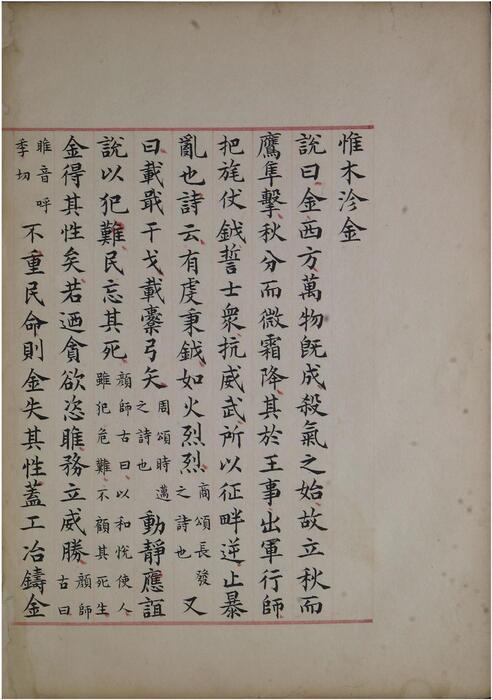 惟木沴金
說曰金西方萬物既成殺氣之始故立秋而
鷹隼擊秋分而微霜降其於王事出軍行師
把旄仗鉞誓士衆抗威武所以征畔逆止暴
亂也詩云有虔秉鉞如火烈烈商頌長發之詩也又
曰載戢干戈載櫜弓矢周頌時邁之詩也動靜應誼
說以犯難民忘其死顔師古曰以和悅使人雖犯危難不顧其死生
金得其性矣若迺貪欲恣睢務立威勝顔師古曰
睢音呼季切不重民命則金失其性蓋工冶鑄金